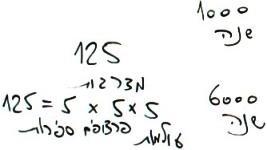 1000
שנה
125
מדרגות
125 = 5 x 5 x 5
עולמות פרצופים ספירות
6000
שנה